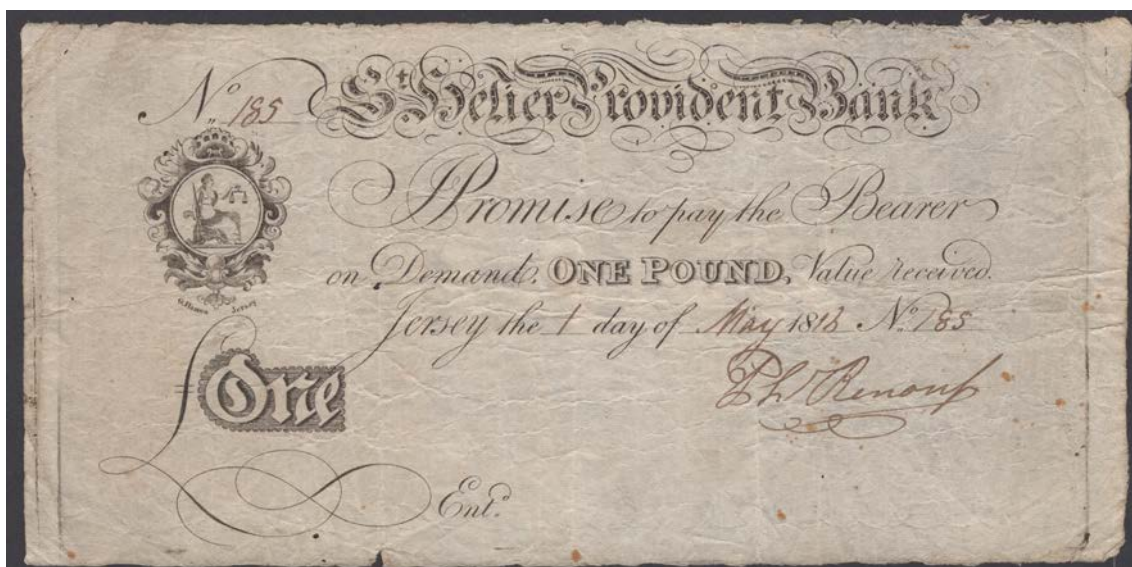 No. 185
St. Helier Provident Bank
I Promise to pay the Bearer
on Demand, ONE POUND, Value received.
Jersey the 1 day of May 1818 No. 185
£ One
Ph. Renouf
Entd.
Jersey